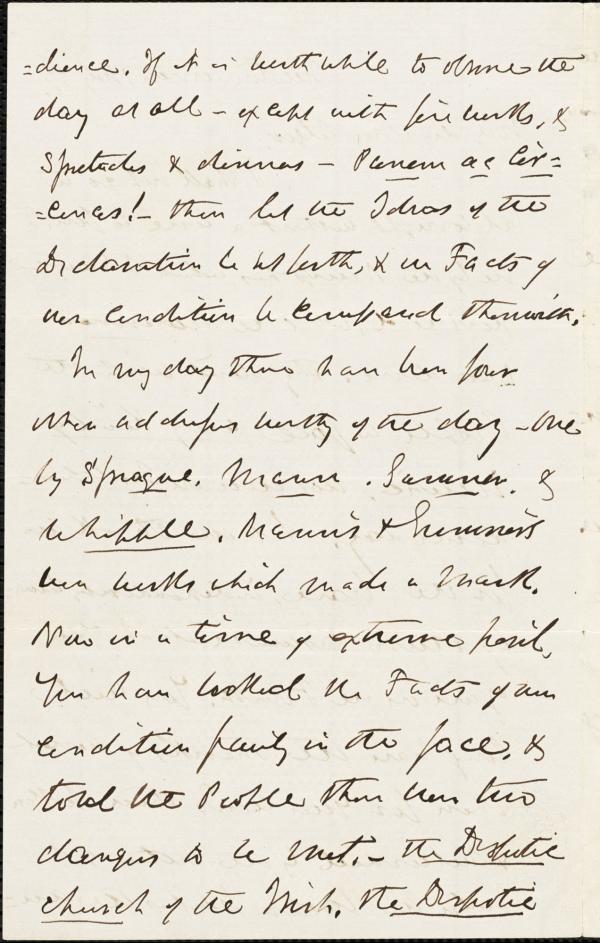 =dience. If it is worth while to observe the
day at all – except with fire works, &
Spectacles & dinners – Panem ac Cir=
=censes! – then let the Ideas of the
Declaration be set forth, & our Facts of
our Condition be Compared therewith.
In my day there have been four
other addresses worthy of the day – One
by Sprague, Mann, Sumner, &
Whipple. Mann's & Sumner's
were works which made a mark.
Now in a time of extreme peril,
You have looked the Facts of our
Condition fairly in the face, &
told the People there were two
dangers to be met, – the Despotic
church of the Irish, the Despotic